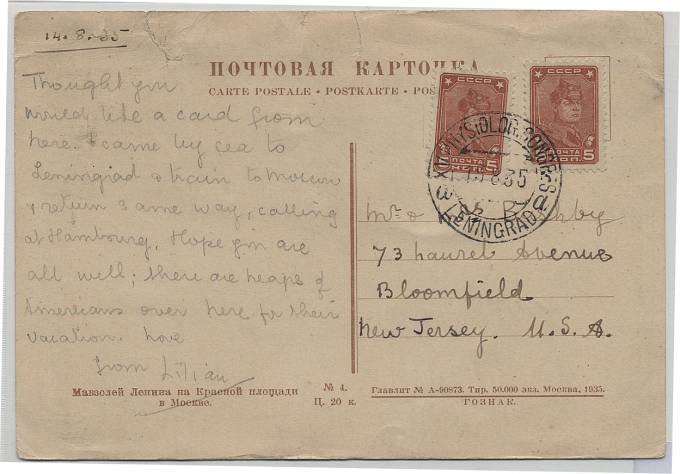 14.8.35
ПОЧТОВАЯ КАРТОЧКА
CARTE POSTALE • POSTKARTE •
Thought you
would like a card from
here. I came by sea to
Leningrad & train to Moscow
& return same way, calling
at Hambourg. Hope you are
all well; there are heaps of
Americans over here for their
vacation. Love
from Lilian
СССР
ПОЧТА
5
КОП.
СССР
ПОЧТА
5
КОП.
PHYSIOLOG. CONGRESS
8.35
LENINGRAD
Mr &
73 Laurel Avenue
Bloomfield
New Jersey. U.S.A.
Мавзолей Ленина на Красной площади
в Москве.
№ 4.
Ц. 20 к.
Главлит № А-90873. Тир. 50.000 экз. Москва, 1935.
ГОЗНАК.